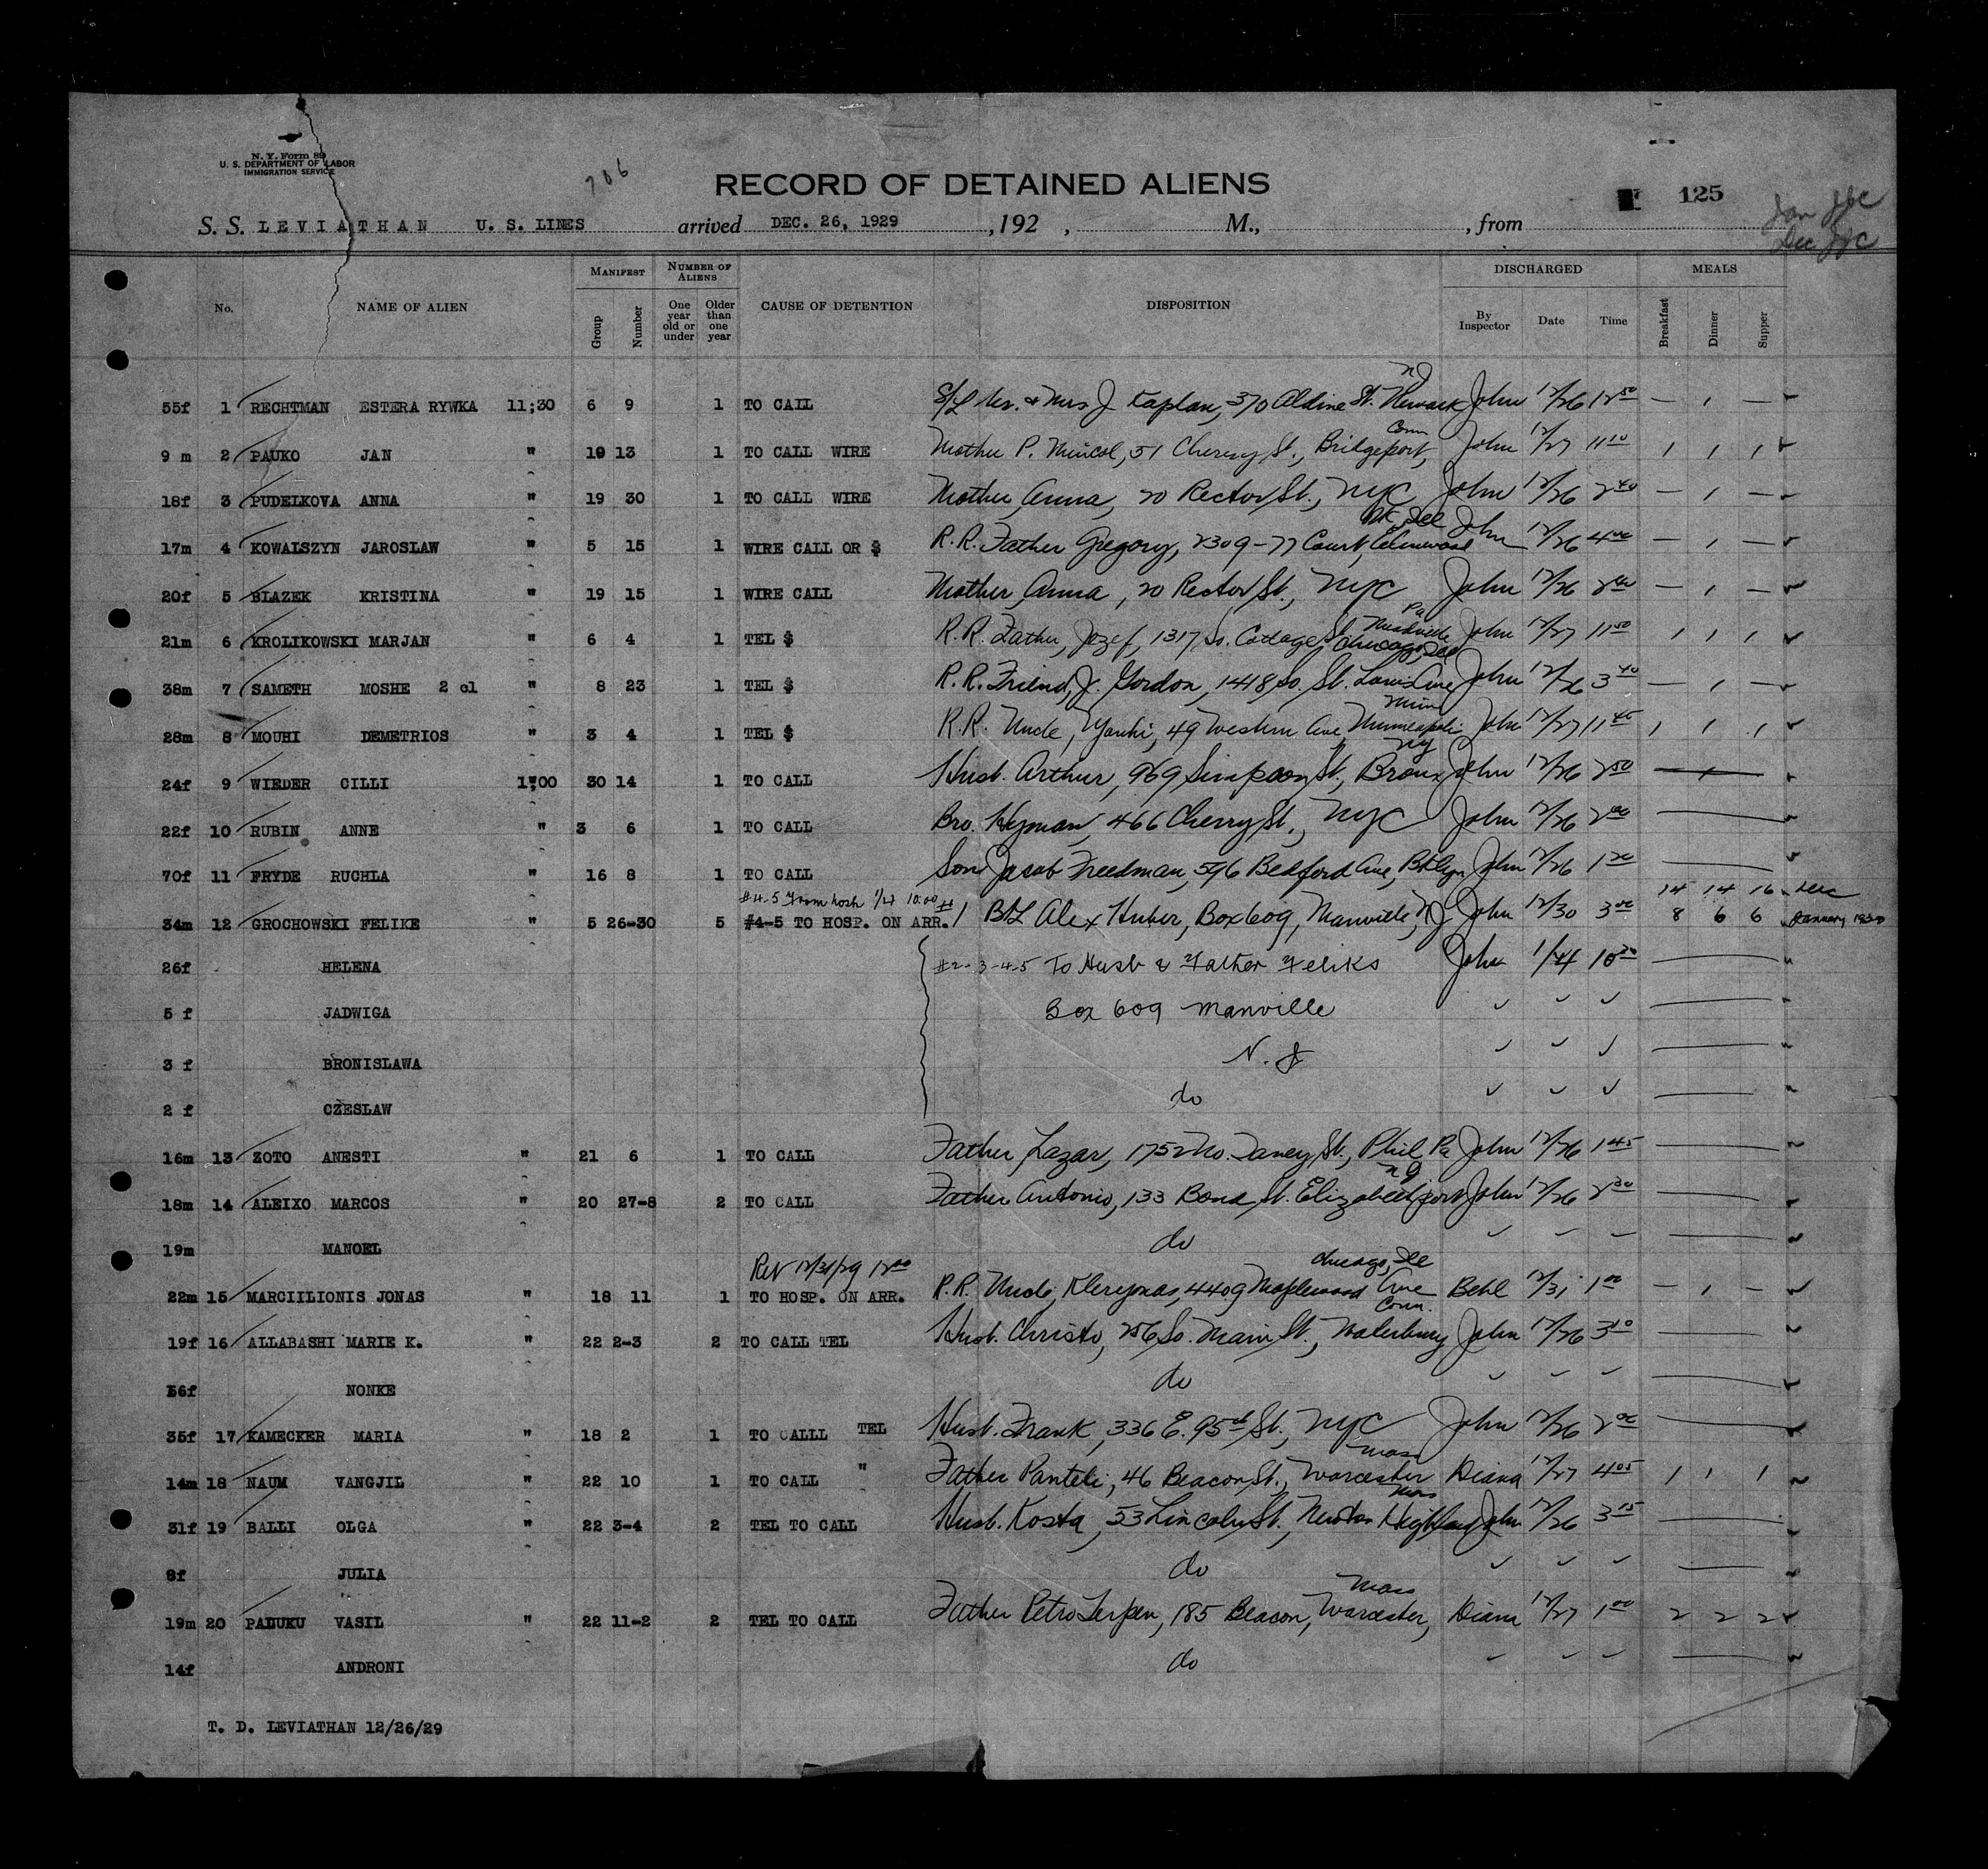 N. Y. Form 89
U. S. DEPARTMENT OF LABOR
IMMIGRATION SERVICE
706
RECORD OF DETAINED ALIENS
125
S. S. LEVIATHAN U. S. LINES arrived DEC. 26, 1929 , 192 , M., , from
Jan
Dec
No. NAME OF ALIEN MANIFEST Group Number NUMBER OF ALIENS One year old or under Older than one year CAUSE OF DETENTION DISPOSITION DISCHARGED By Inspector Date Time MEALS Breakfast Dinner Supper
55f 1 RECHTMAN ESTERA RYWKA 11;30 6 9 1 TO CALL S/L Mr. & Mrs J Kaplan, 370 Aldine St. Newark NJ John 12/26 12 50 — 1 —
9 m 2 PAUKO JAN " 19 13 1 TO CALL WIRE Mother P. Mincol, 51 Cherry St., Bridgeport, Conn John 12/27 11 10 1 1 1
18f 3 PUDELKOVA ANNA " 19 30 1 TO CALL WIRE Mother Anna, 20 Rector St., NYC John 12/26 2 40 — 1 —
17m 4 KOWALSZYN JAROSLAW " 5 15 1 WIRE CALL OR $ R.R. Father Gregory, 2309-77 Court, Elmwood Pk, Ill John 12/26 4 00 — 1 —
20f 5 BLAZEK KRISTINA " 19 15 1 WIRE CALL Mother Anna, 20 Rector St., NYC John 12/26 2 40 — 1 —
21m 6 KROLIKOWSKI MARJAN " 6 4 1 TEL $ R.R. Father, Jozef, 1317 So. Cottage St. Meadville Pa John 12/27 11 50 1 1 1
38m 7 SAMETH MOSHE 2 cl " 8 23 1 TEL $ R.R. Friend, J. Gordon, 1418 So. St. Louis Ave Chicago, Ill John 12/26 3 40 — 1 —
28m 8 MOUHI DEMETRIOS " 3 4 1 TEL $ R.R. Uncle, Yanhi, 49 Western Ave Minneapolis Minn John 12/27 11 45 1 1 1
24f 9 WIEDER CILLI 1;00 30 14 1 TO CALL Husb. Arthur, 969 Simpson St., Bronx NY John 12/26 2 50
22f 10 RUBIN ANNE " 3 6 1 TO CALL Bro. Hyman, 466 Cherry St., NYC John 12/26 2 00
70f 11 FRYDE RUCHLA " 16 8 1 TO CALL Son Jacob Freedman, 596 Bedford Ave, Bklyn John 12/26 1 20
#4-5 From hosp 1/4 10:00
14 14 16 Dec
34m 12 GROCHOWSKI FELIKE " 5 26-30 5 #4-5 TO HOSP. ON ARR. 1 B/L Alex Huber, Box 609, Manville, NJ John 12/30 3 00 8 6 6 January 1930
26f HELENA #2-3-4-5 To Husb & Father Feliks John 1/4 10 30
5 f JADWIGA Box 609 Manville
3 f BRONISLAWA N. J
2 f CZESLAW do
16m 13 ZOTO ANESTI " 21 6 1 TO CALL Father Lazar, 1752 No. Taney St., Phil Pa John 12/26 1 45
18m 14 ALEIXO MARCOS " 20 27-8 2 TO CALL Father Antonio, 133 Bond St. Elizabethport NJ John 12/26 2 30
19m MANOEL do
Rev 12/31/29 12 00
22m 15 MARCIILIONIS JONAS " 18 11 1 TO HOSP. ON ARR. R.R. Uncle, Kleiponas, 4409 Maplewood Ave Chicago, Ill Behl 12/31 1 00 — 1 —
19f 16 ALLABASHI MARIE K. " 22 2-3 2 TO CALL TEL Husb. Christo, 256 So. Main St., Waterbury Conn. John 12/26 3 10
56f NONKE do
35f 17 KAMECKER MARIA " 18 2 1 TO CALLL TEL Husb. Frank, 336 E. 95th St., NYC John 12/26 2 00
14m 18 NAUM VANGJIL " 22 10 1 TO CALL " Father Panteli, 46 Beacon St., Worcester Mass Diana 12/27 4 05 1 1 1
31f 19 BALLI OLGA " 22 3-4 2 TEL TO CALL Husb. Kosta, 53 Lincoln St., Newton Highland Mass John 12/26 3 15
8f JULIA do
19m 20 PALUKU VASIL " 22 11-2 2 TEL TO CALL Father Petro Terpen, 185 Beacon, Worcester, Mass Diana 12/27 1 00 2 2 2
14f ANDRONI do
T. D. LEVIATHAN 12/26/29